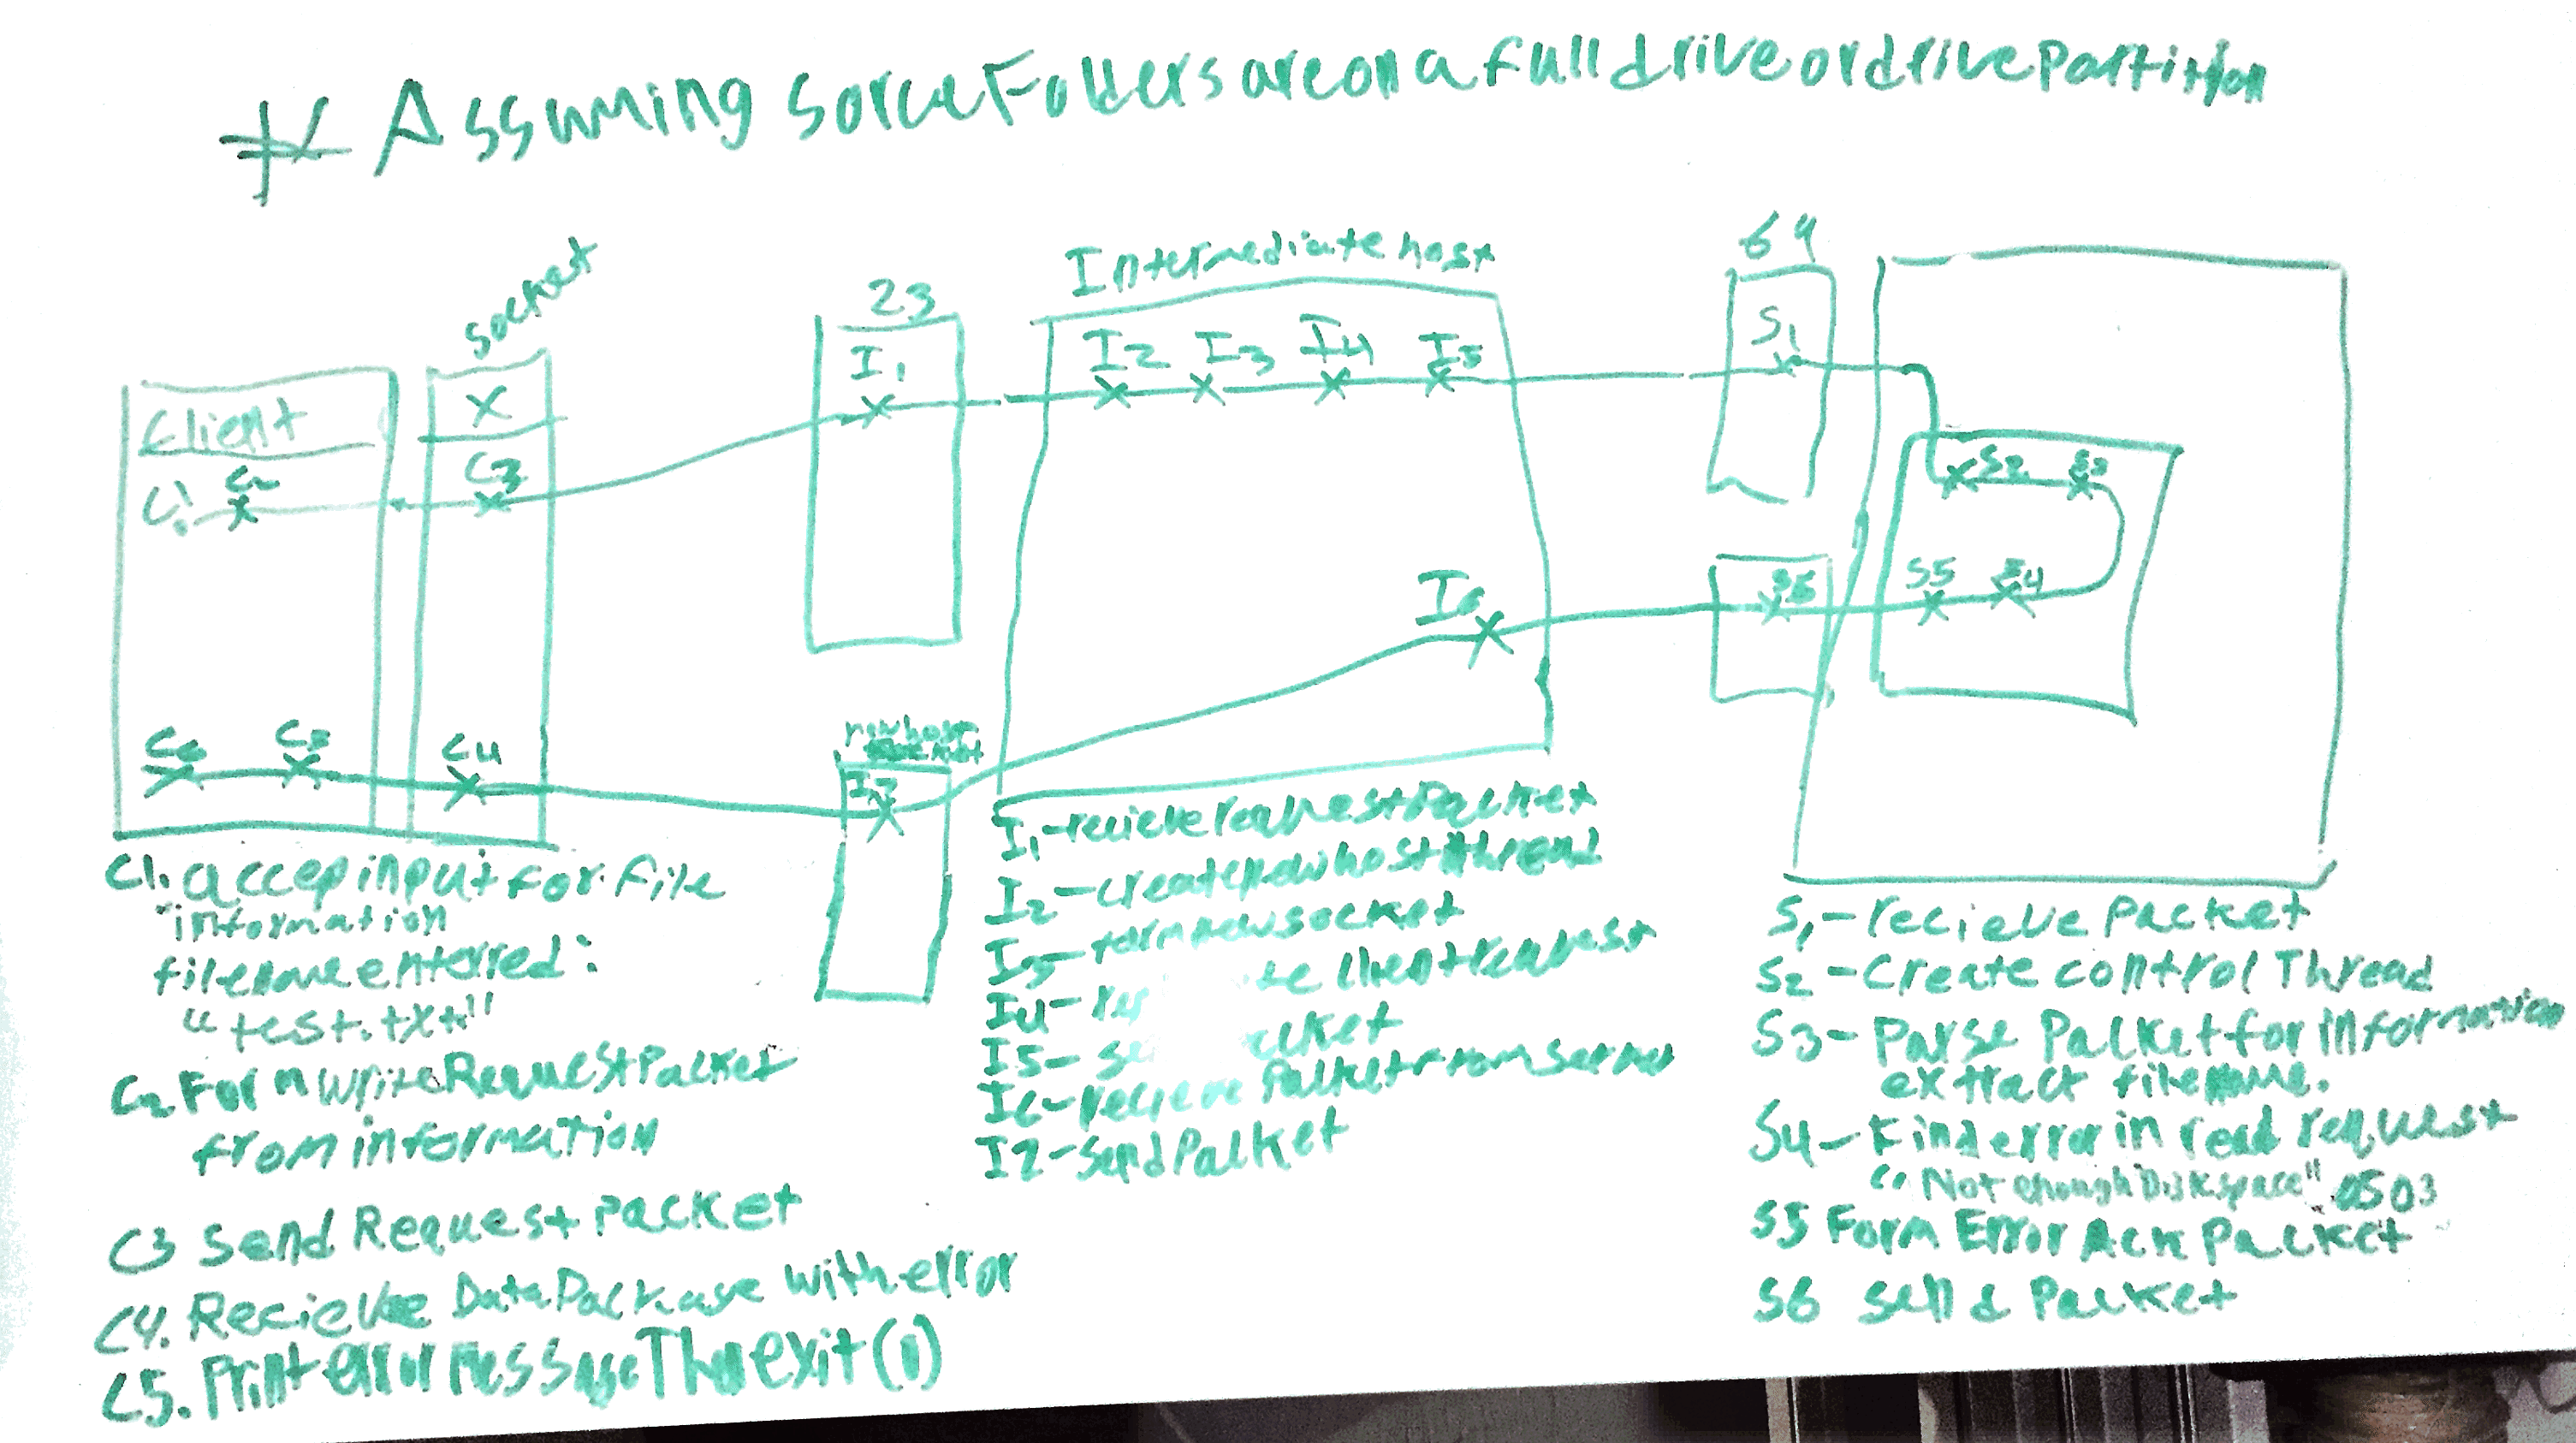 * Assuming Sorce Folders are on a full drive or drive Partition
socket
23
Intermediate host
69
Client
X
C1 C2
C3
I1
I2 I3 I4 I5
S1
S2 S3
S5 S4
S6
I6
C6 C5
C4
new host
I7
C1. accep input for file
information
filename enterred:
"test.txt"
C2 Form write Request Packet
from information
C3 Send Request packet
C4. Recieve Data Package with error
C5. Print error message Then exit(0)
I1 - recieve request Packet
I2 - create new host thread
I3 - form new socket
I4 - client request
I5 -
I6 - recieve Packet from server
I7 - send Packet
S1 - recieve packet
S2 - Create control Thread
S3 - Parse Packet for information
extract filename.
S4 - Find error in read request
"Not enough Disk space" 0503
S5 Form Error Ack Packet
S6 Send Packet